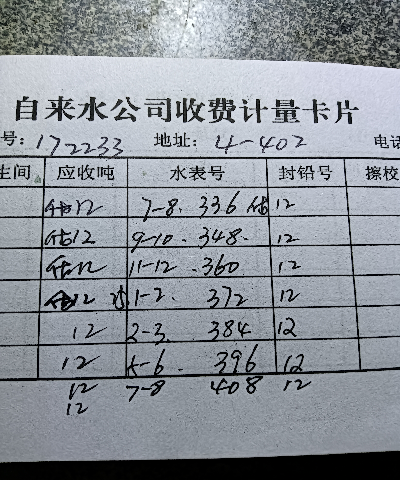 自来水公司收费计量卡片
号: 172233 地址: 4-402 电话
生间 应收吨 水表号 封铅号 擦校
估12 7-8. 336 估 12
估12 9-10. 348. 12
估12 11-12 360 12
估12 1-2. 372 12
12 3-3. 384 12
12 5-6. 396 12
12 7-8 408 12
12